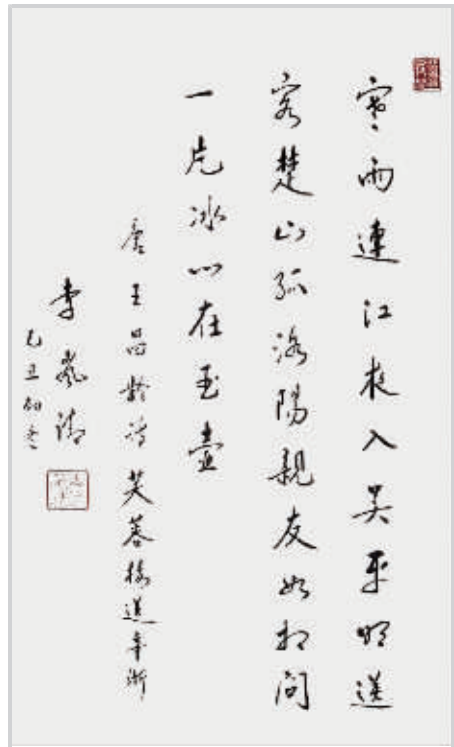 寒雨連江夜入吴平明送
客楚山孤洛陽親友如相问
一片冰心在玉壶
唐王昌龄诗芙蓉楼送辛渐
李嵐清
己丑初冬